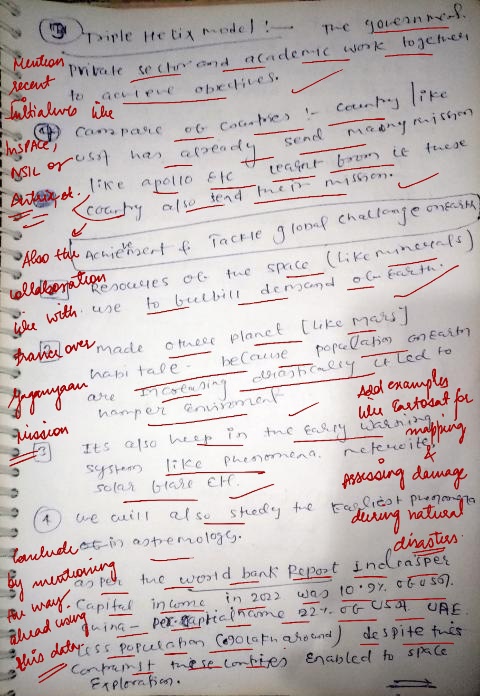 Triple Helix model :- The government.
Private sector and academic work together
to achieve objectives.
Mention
recent
Initiatives like
InSPACe,
NSIL or
Antrix et.
Compare of countries :- country like
USA has already send many mission
like apollo etc learnt from it these
country also send their mission.
Also the
collaboration
like with
France over
Gaganyaan
mission
Achievement & Tackle global challenge on earth
Resources of the space (like minerals)
use to fulfill demand of Earth.
made other planet [like mars]
habitale. because population on earth
are Increasing drastically it led to
hamper enviroment
3 Its also help in the early warning
system like phenomena. meteroite,
solar flare etc.
Add examples
like Cartosat for
mapping
&
Assessing damage
during natural
disasters.
4 we will also study the Earliest phenomena
in astremology.
Conclude
by mentioning
the way
ahead using
this data.
as per the world bank Report India's per
Capital income in 2022 was 10.9% of USA.
China - per capital income 22% of USA. UAE
less population (90 lakh around) despite this
constraint these contries enabled to space
Exploration.